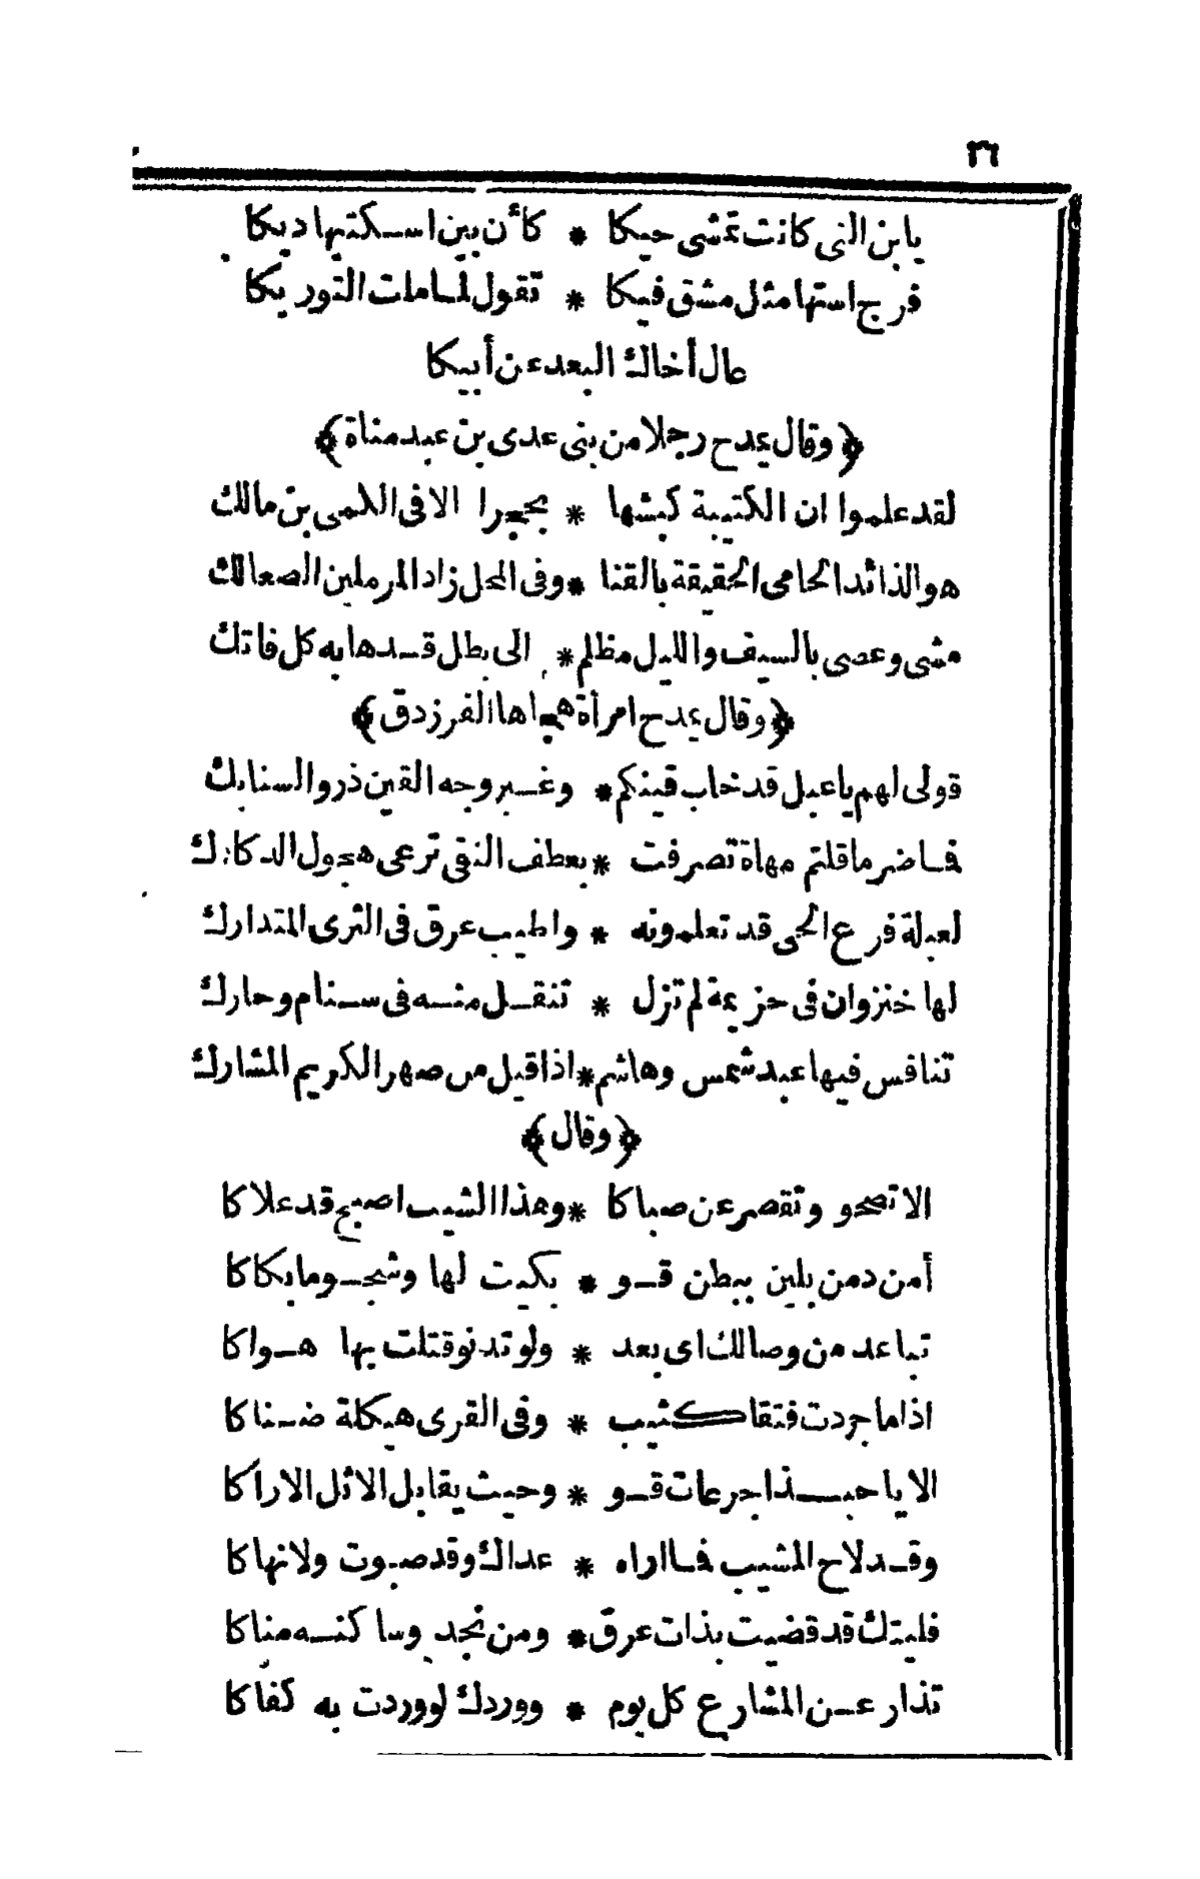 ٣٦
يا بن التى كانت تمشى حيكا * كأن بين اسكتيها ديكا
فرج استها مثل مشق فيكا * تقول لما ملت التوريكا
عال أخاك البعد عن أبيكا
﴿وقال يمدح رجلا من بنى عدى بن عبد مناة﴾
لقد علموا ان الكتيبة كبشها * بحجرا الافى اللامى بن مالك
هو الذائد الحامى الحقيقة بالقنا * وفى المحل زاد المرملين الصعالك
مشى وعصى بالسيف والليل مظلم * الى بطل قد هابه كل فاتك
﴿وقال يمدح امرأة هجاها الفرزدق﴾
قولى لهم يا عبل قد خاب قينكم * وغبر وجه القين ذرو السنابك
فما ضر ما قلتم مهاة تصرفت * بعطف النقى ترعى هجول الدكادك
لعبلة فرع الحى قد تعلمونه * واطيب عرق فى الثرى المتدارك
لها خنزوان فى حزيمة لم تزل * تنقل منه فى سنام وحارك
تنافس فيها عبد شمس وهاشم * اذا قيل من صهر الكريم المشارك
﴿وقال﴾
الا تصحو وتقصر عن صباكا * وهذا الشيب اصبح قد علاكا
أمن دمن بلين ببطن قو * بكيت لها وشجو ما بكاكا
تباعد من وصالك اى بعد * ولو تدنو قتلت بها هواكا
اذا ما جردت فنقا كثيب * وفى القرى هيكلة ضناكا
الا يا حبذا جرعات قو * وحيث يقابل الاثل الاراكا
وقد لاح المشيب فما اراه * عداك وقد صبوت ولا نهاكا
فليتك قد قضيت بذات عرق * ومن نجد وسا كنه مناكا
تذار عن المشارع كل يوم * ووردك لو وردت به كفاكا